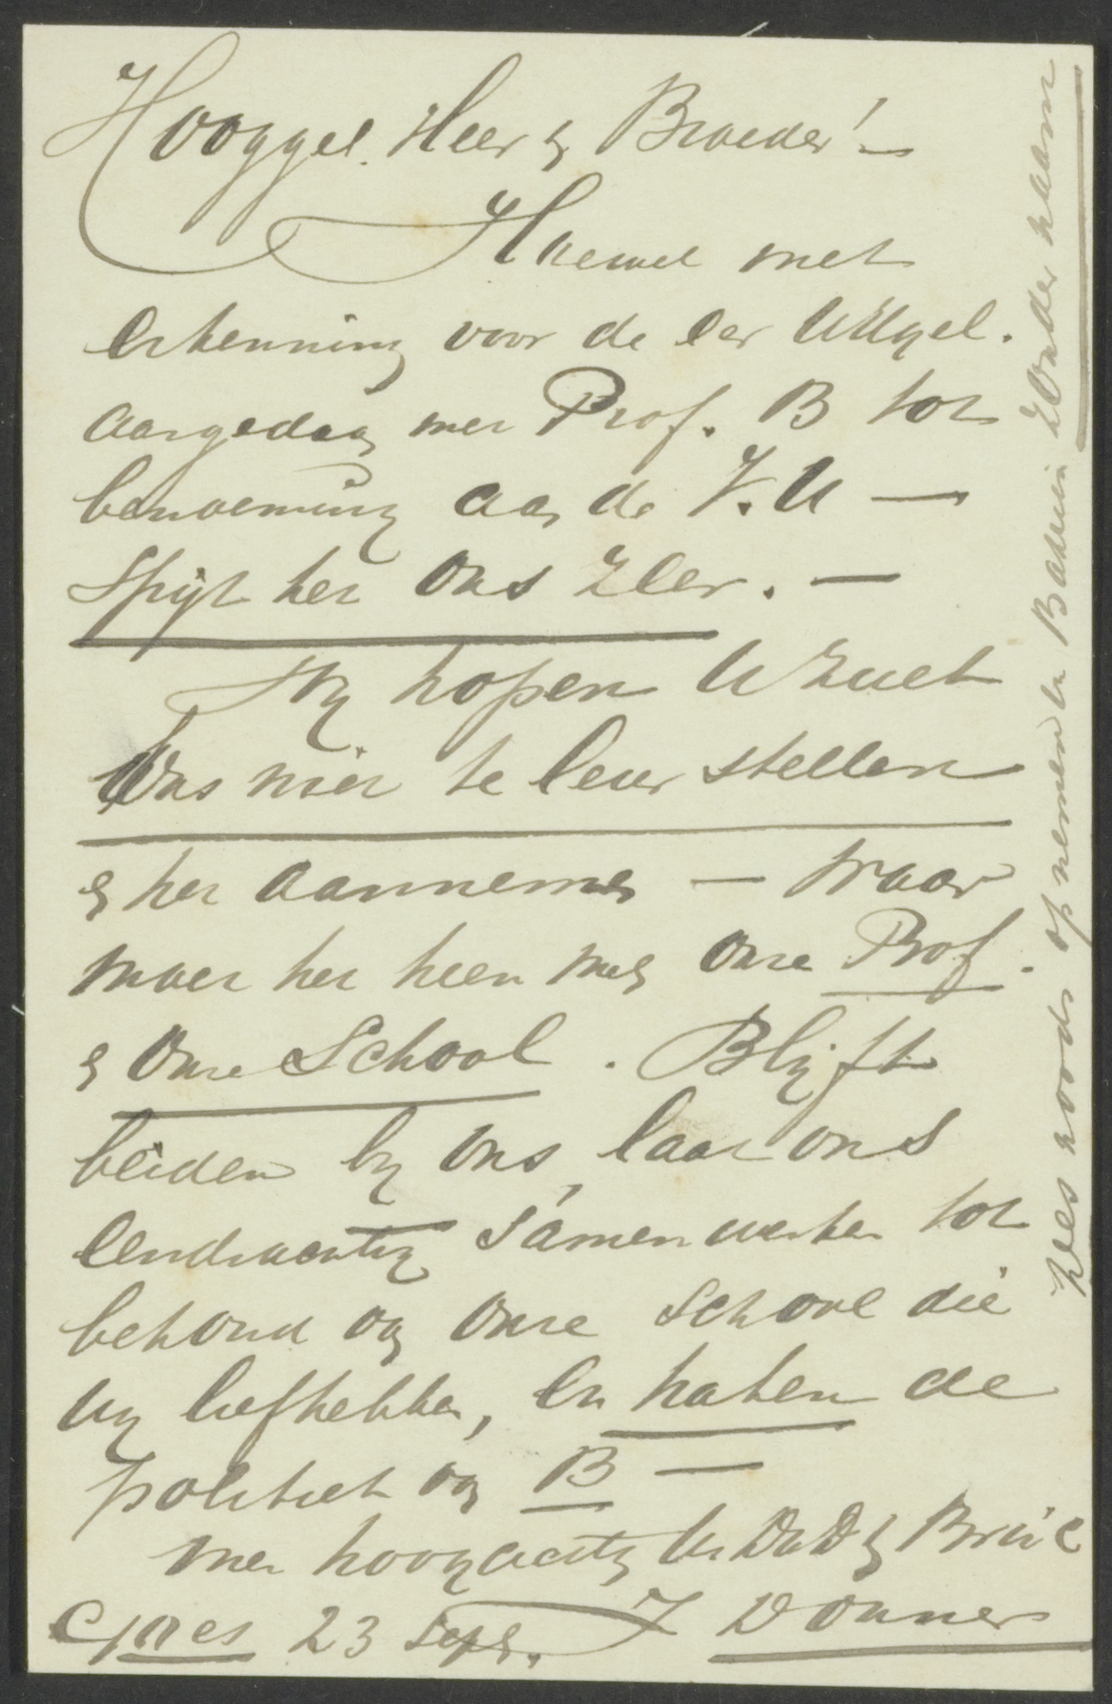 Hooggel. Heer & Broeder!
Hoewel met
erkenning voor de eer UHgel.
aangedaan met Prof. B tot
benoeming aan de V.U —
spijt het ons zeer. —
Wij hopen U zult
Ons niet te leur stellen
& het aannemen — Waar
moet het heen met onze Prof.
& onze School. Blijft
beiden bij ons, laat ons
eendrachtig samenwerken tot
behoud van onze School die
wij liefhebben, en haten de
politiek van B —
met hoogachting Uw DwD & Br
23 Sept. J Donner
Lees noods op nemen in Bazuin zonder naam